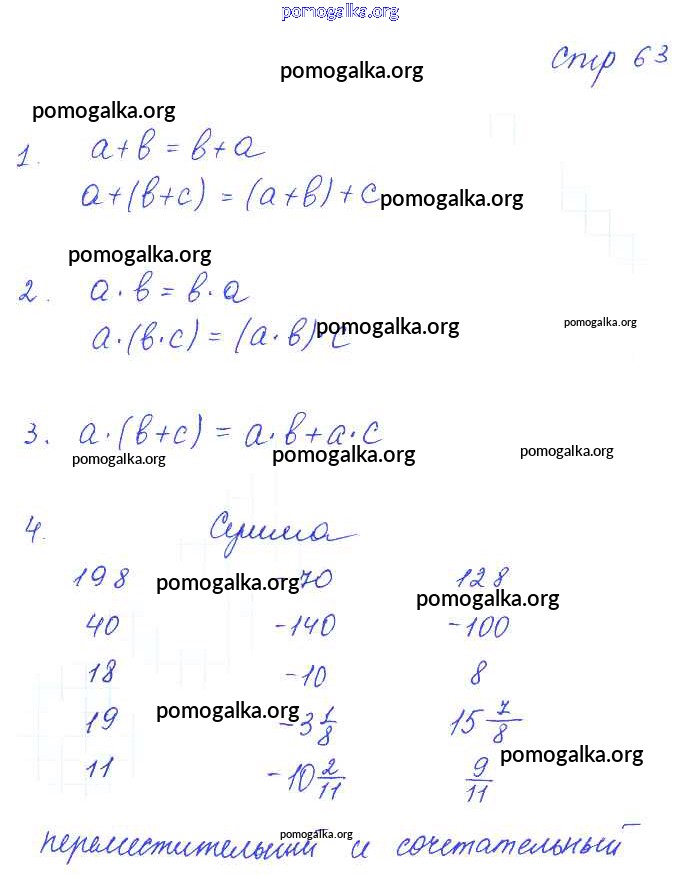 pomogalka.org
стр 63
pomogalka.org
pomogalka.org
1. a+b=b+a
a+(b+c)=(a+b)+c pomogalka.org
pomogalka.org
2. a·b=b·a
a·(b·c)=(a·b)·c pomogalka.org pomogalka.org
3. a·(b+c)=a·b+a·c
pomogalka.org pomogalka.org pomogalka.org
4. Сумма
198 pomogalka.org -70 128
pomogalka.org
40 -140 -100
18 -10 8
19 pomogalka.org -3 1/8 15 7/8
pomogalka.org
11 -10 2/11 9/11
pomogalka.org
переместительный и сочетательный